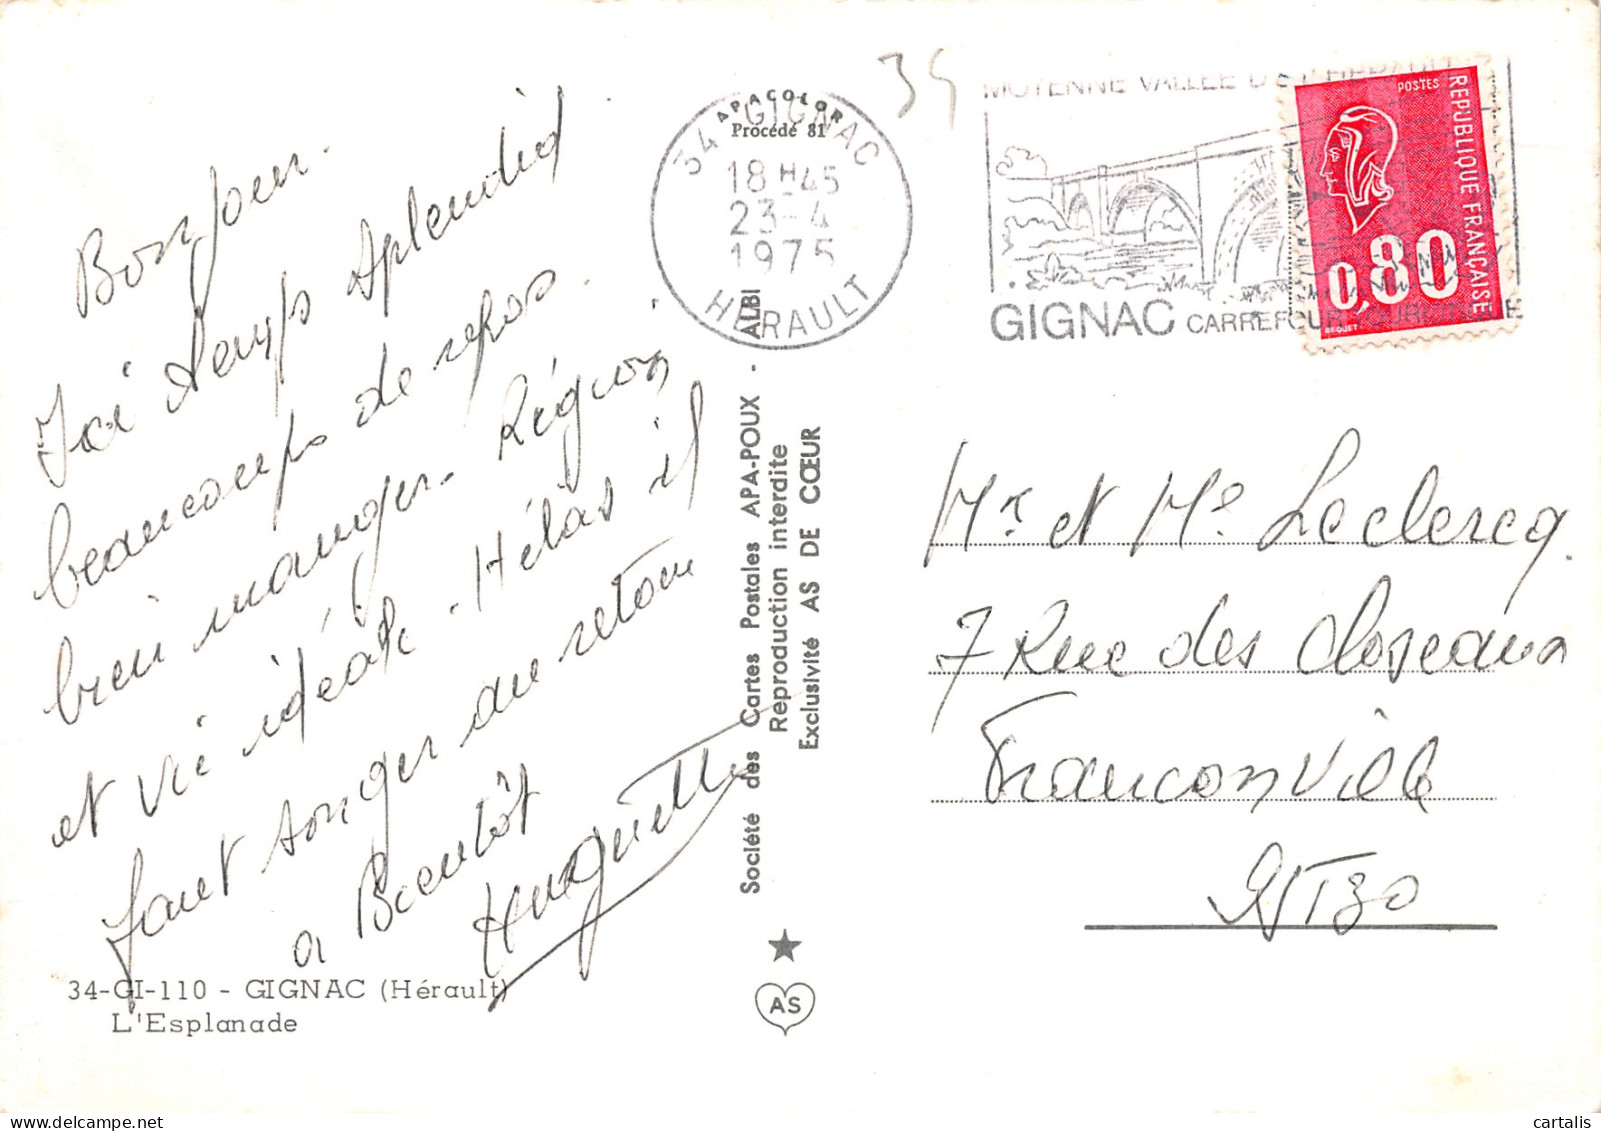 Bonjour.
Ici temps splendid
beaucoup de repos.
bien manger. Région
et vie idéale. Hélas il
faut songer au retour
a Bientôt
Huguette
34-GI-110 - GIGNAC (Hérault)
L'Esplanade
APACOLOR
Procédé 81
34 GIGNAC
18 H 45
23-4
1975
HERAULT
Société des Cartes Postales APA-POUX - ALBI
Reproduction interdite
Exclusivité AS DE CŒUR
AS
34
MOYENNE VALLEE DE L'HERAULT
GIGNAC CARREFOUR TOURISTIQUE
POSTES
REPUBLIQUE FRANÇAISE
0,80
BEQUET
Mr et Me Leclercq.
7 Rue des Closeaux
Franconville
95130
cartalis